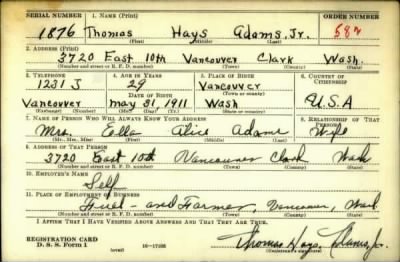 SERIAL NUMBER 1. NAME (Print) ORDER NUMBER
1876 Thomas Hays Adams, Jr. 587
(First) (Middle) (Last)
2. ADDRESS (Print)
3720 East 10th Vancouver Clark Wash.
(Number and street or R. F. D. number) (Town) (County) (State)
3. TELEPHONE 4. AGE IN YEARS 5. PLACE OF BIRTH 6. COUNTRY OF CITIZENSHIP
1231 J 29 Vancouver
DATE OF BIRTH (Town or county)
Vancouver May 31 1911 Wash U.S.A
(Exchange) (Mo.) (Day) (Yr.) (State or country)
7. NAME OF PERSON WHO WILL ALWAYS KNOW YOUR ADDRESS 8. RELATIONSHIP OF THAT PERSON
Mrs. Ella Alice Adams Wife
(Mr., Mrs., Miss) (First) (Middle) (Last)
9. ADDRESS OF THAT PERSON
3720 East 10th Vancouver Clark Wash
(Number and street or R. F. D. number) (Town) (County) (State)
10. EMPLOYER'S NAME
Self
11. PLACE OF EMPLOYMENT OR BUSINESS
Fuel - and Farmer, Vancouver, Wash
(Number and street or R. F. D. number) (Town) (County) (State)
I AFFIRM THAT I HAVE VERIFIED ABOVE ANSWERS AND THAT THEY ARE TRUE.
REGISTRATION CARD
D. S. S. Form 1 (over) 16-17105 Thomas Hays Adams, Jr.
(Registrant's signature)